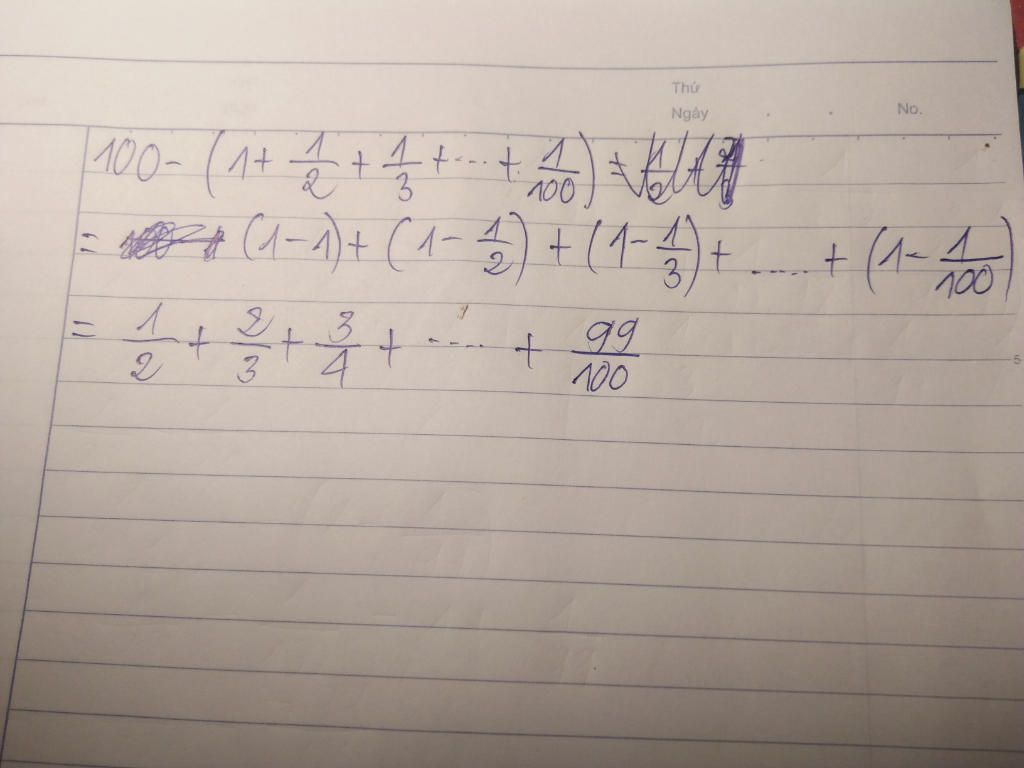 Thứ
Ngày . . No.
100 - (1 + 1/2 + 1/3 + ... + 1/100) =
= (1 - 1) + (1 - 1/2) + (1 - 1/3) + ..... + (1 - 1/100)
= 1/2 + 2/3 + 3/4 + ..... + 99/100
5